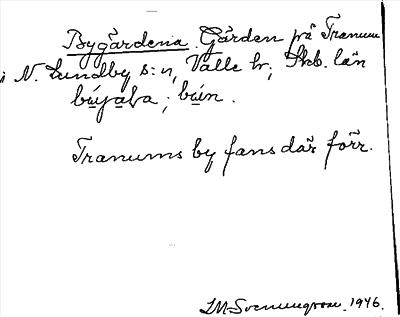 Bygårdena. Gården på Tranum
i N. Lundby s:n, Valle hr, Skb. län
býyaba; bún.
Tranums by fans där förr.
1946.